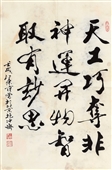 天工巧奪非
神運開物智
取有妙思